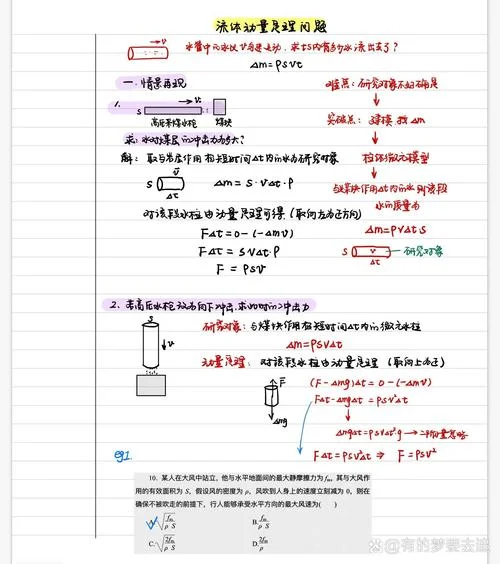 流体动量定理问题
水管中的水以v匀速运动,求t S内有多少水流出去了?
v
Δm=ρsvt
一.情景再现
难点:研究对象不好确定
1.
S
v
高压采煤水枪
煤块
突破点:建模 找Δm
求:水对煤层的冲击力为多大?
柱体微元模型
解:取与岩层作用极短时间Δt内的水为研究对象
S
v
Δt
Δm=S·vΔt·ρ
与煤块作用Δt内的水则该段
水的质量为
Δm=ρvΔt.s
对该段水柱由动量定理可得(取向左为正方向)
FΔt=0-(-Δmv)
FΔt=SvΔt·ρ
F=ρsv
S
Δt
研究对象
2.若高压水枪放为向下冲击,求此时的冲击力
S
v
研究对象:与煤块作用极短时间Δt内的微元水柱
Δm=ρsvΔt
动量定理:对该段水柱由动量定理(取向上为正)
F
Δmg
(F-Δmg)Δt=0-(-Δmv)
FΔt-Δmgat=ρsv²Δt
ΔmgΔt=ρsvΔt².g→二阶无穷小量忽略
FΔt=ρsv²Δt ⇒ F=ρsv²
eg1.
10. 某人在大风中站立,他与水平地面间的最大静摩擦力为fm,其与大风作
用的有效面积为 S,假设风的密度为 ρ,风吹到人身上的速度立刻减为 0,则在
确保不被吹走的前提下,行人能够承受水平方向的最大风速为( )
A.√(fm/ρS) B.fm/ρS
C.√(2fm/ρS) D.2fm/ρ
@有的梦要去追